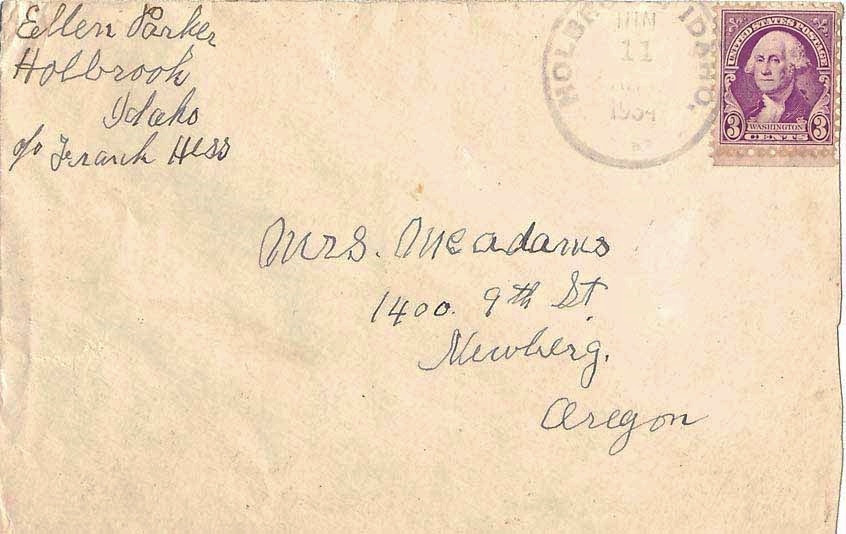 Ellen Parker
Holbrook
Idaho
c/o Frank Hess
HOLBROOK IDAHO.
JUN
11
1934
UNITED STATES POSTAGE
3 WASHINGTON 3
CENTS
Mrs. McAdams
1400. 9th St
Newberg.
Oregon